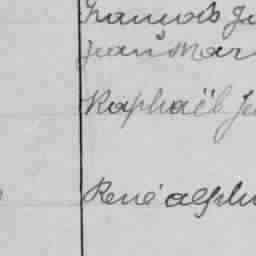 François
Jean Mar
Raphaël Je
René alph